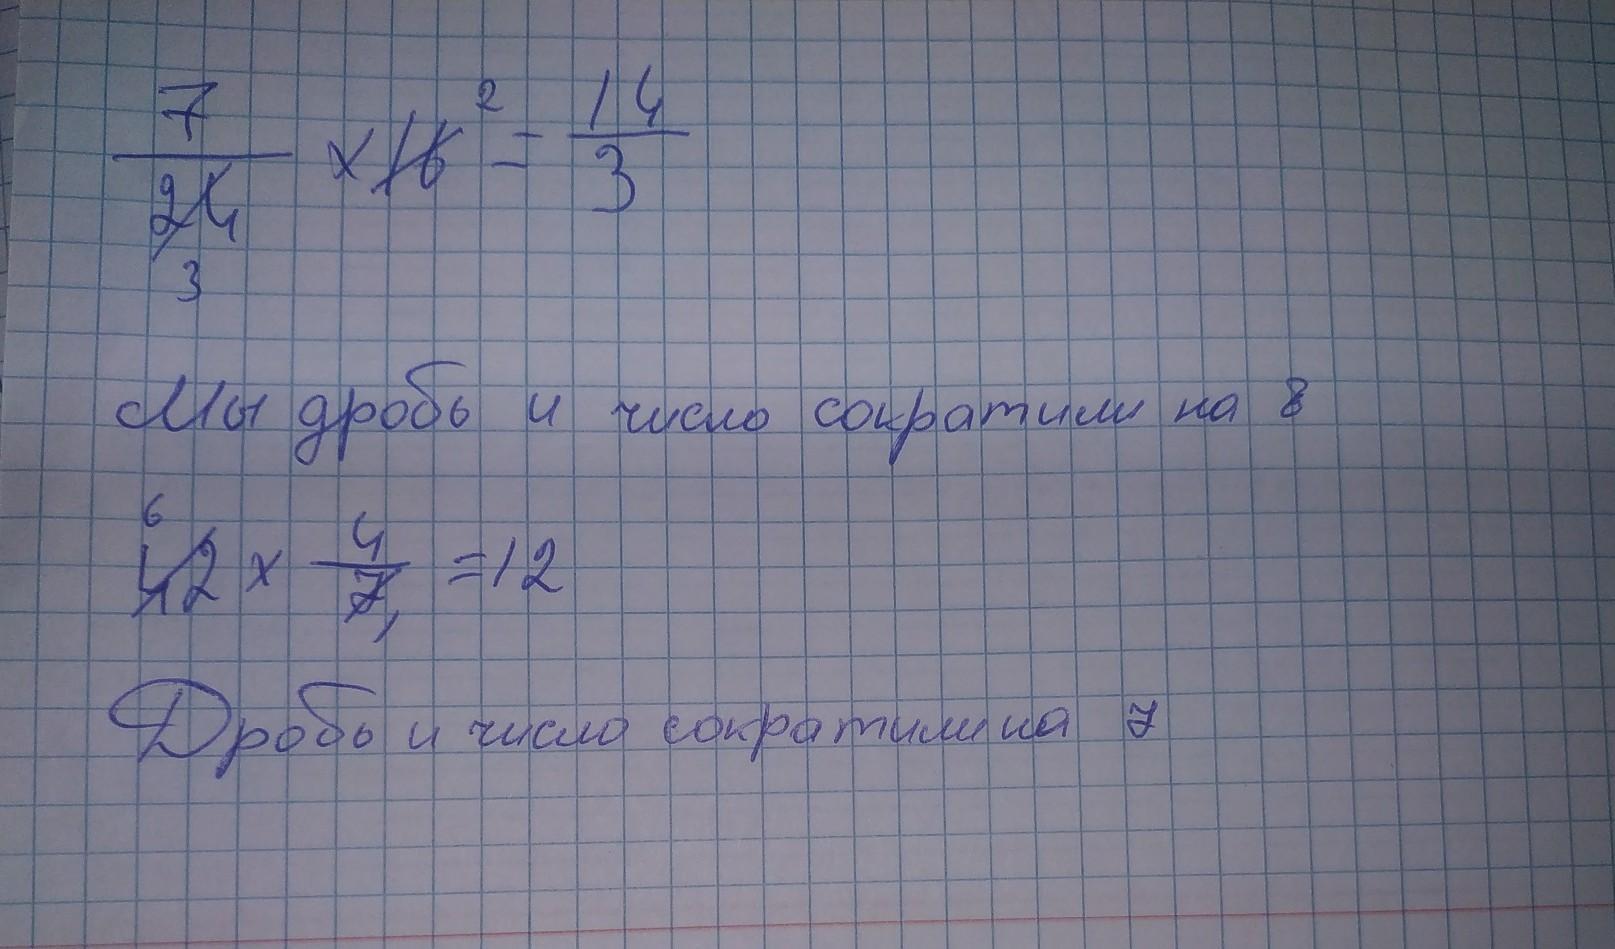 7/24 3 × 16 2 = 14/3
Мы дробь и число сократили на 8
6 42 × 4/7 1 = 12
Дробь и число сократили на 7